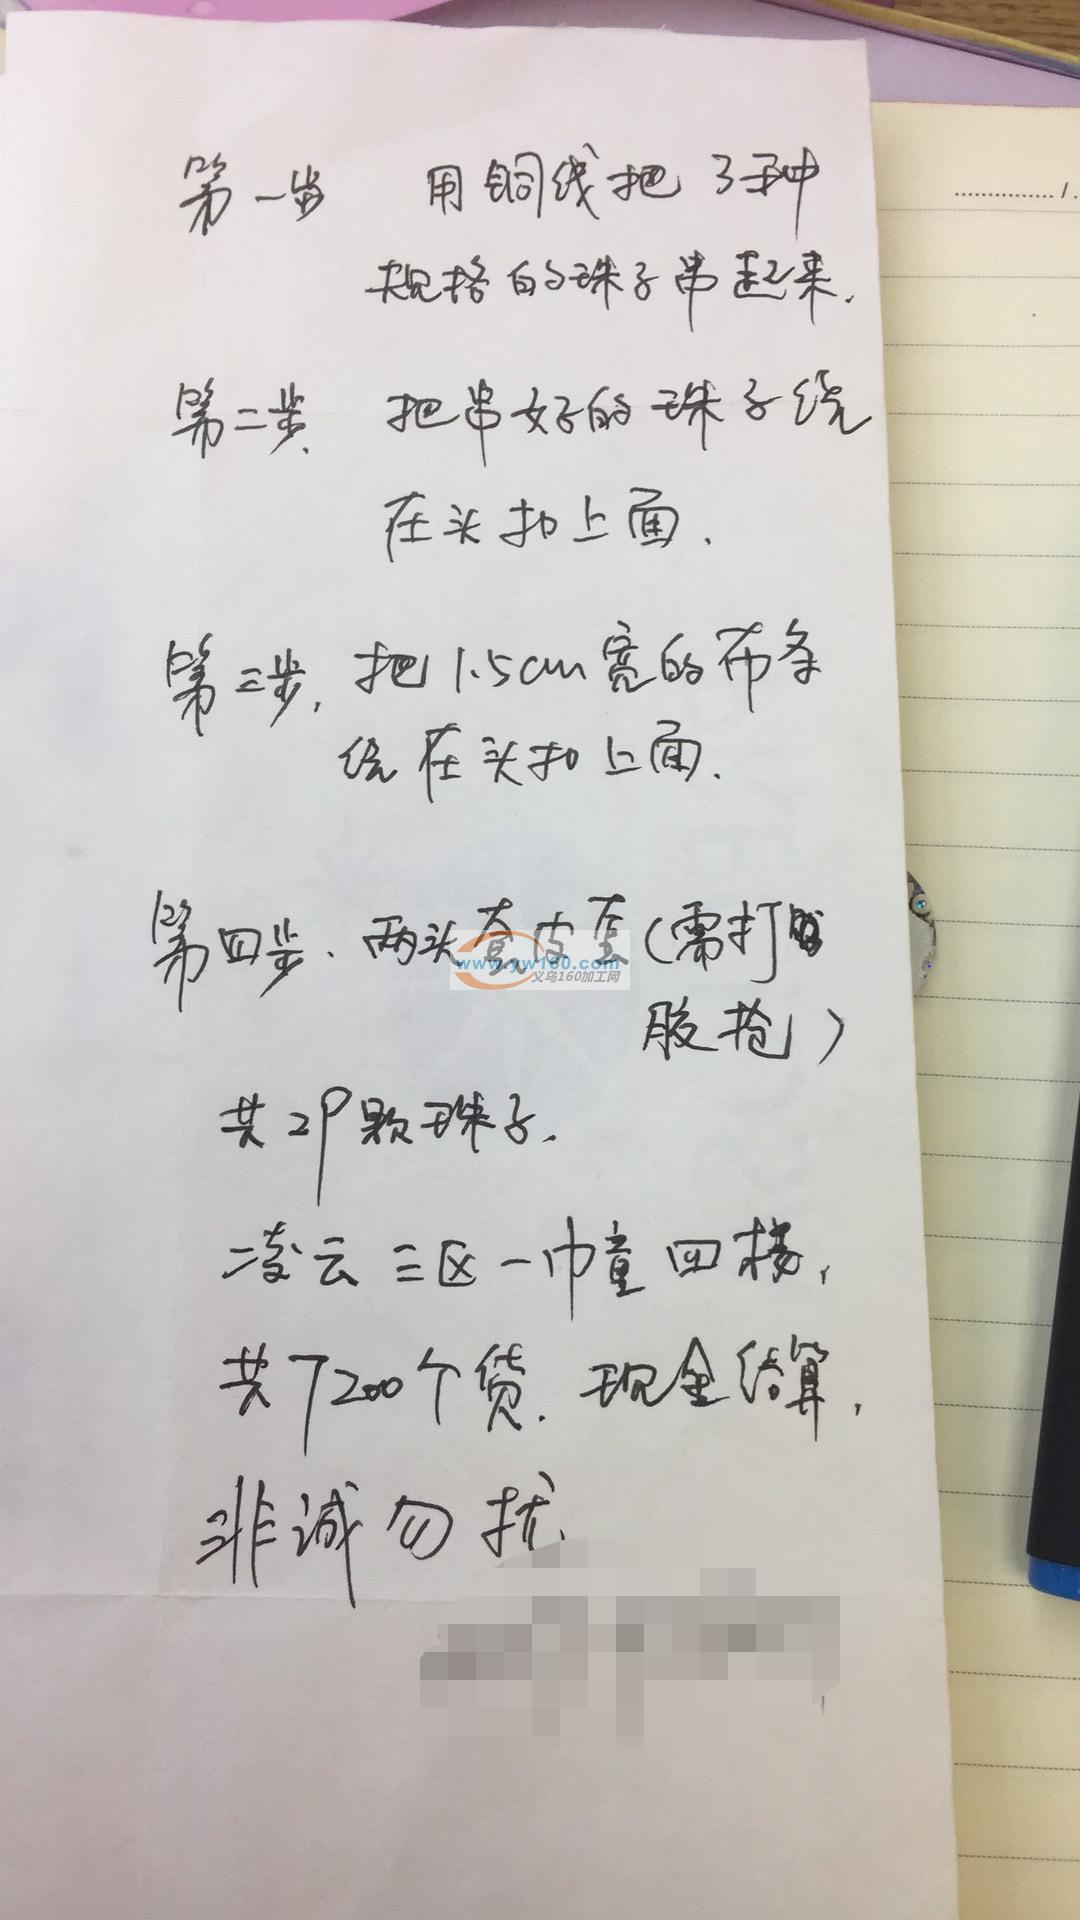 第一步 用铜线把3种
规格的珠子串起来.
第二步. 把串好的珠子绕
在头扣上面.
第三步, 把1.5cm宽的布条
绕在头扣上面.
第四步. 两头套皮套(需打
胶抢)
www.yw160.com
义乌160加工网
共29颗珠子.
凌云三区一巾童四楼,
共7200个货. 现金结算,
非诚勿扰.